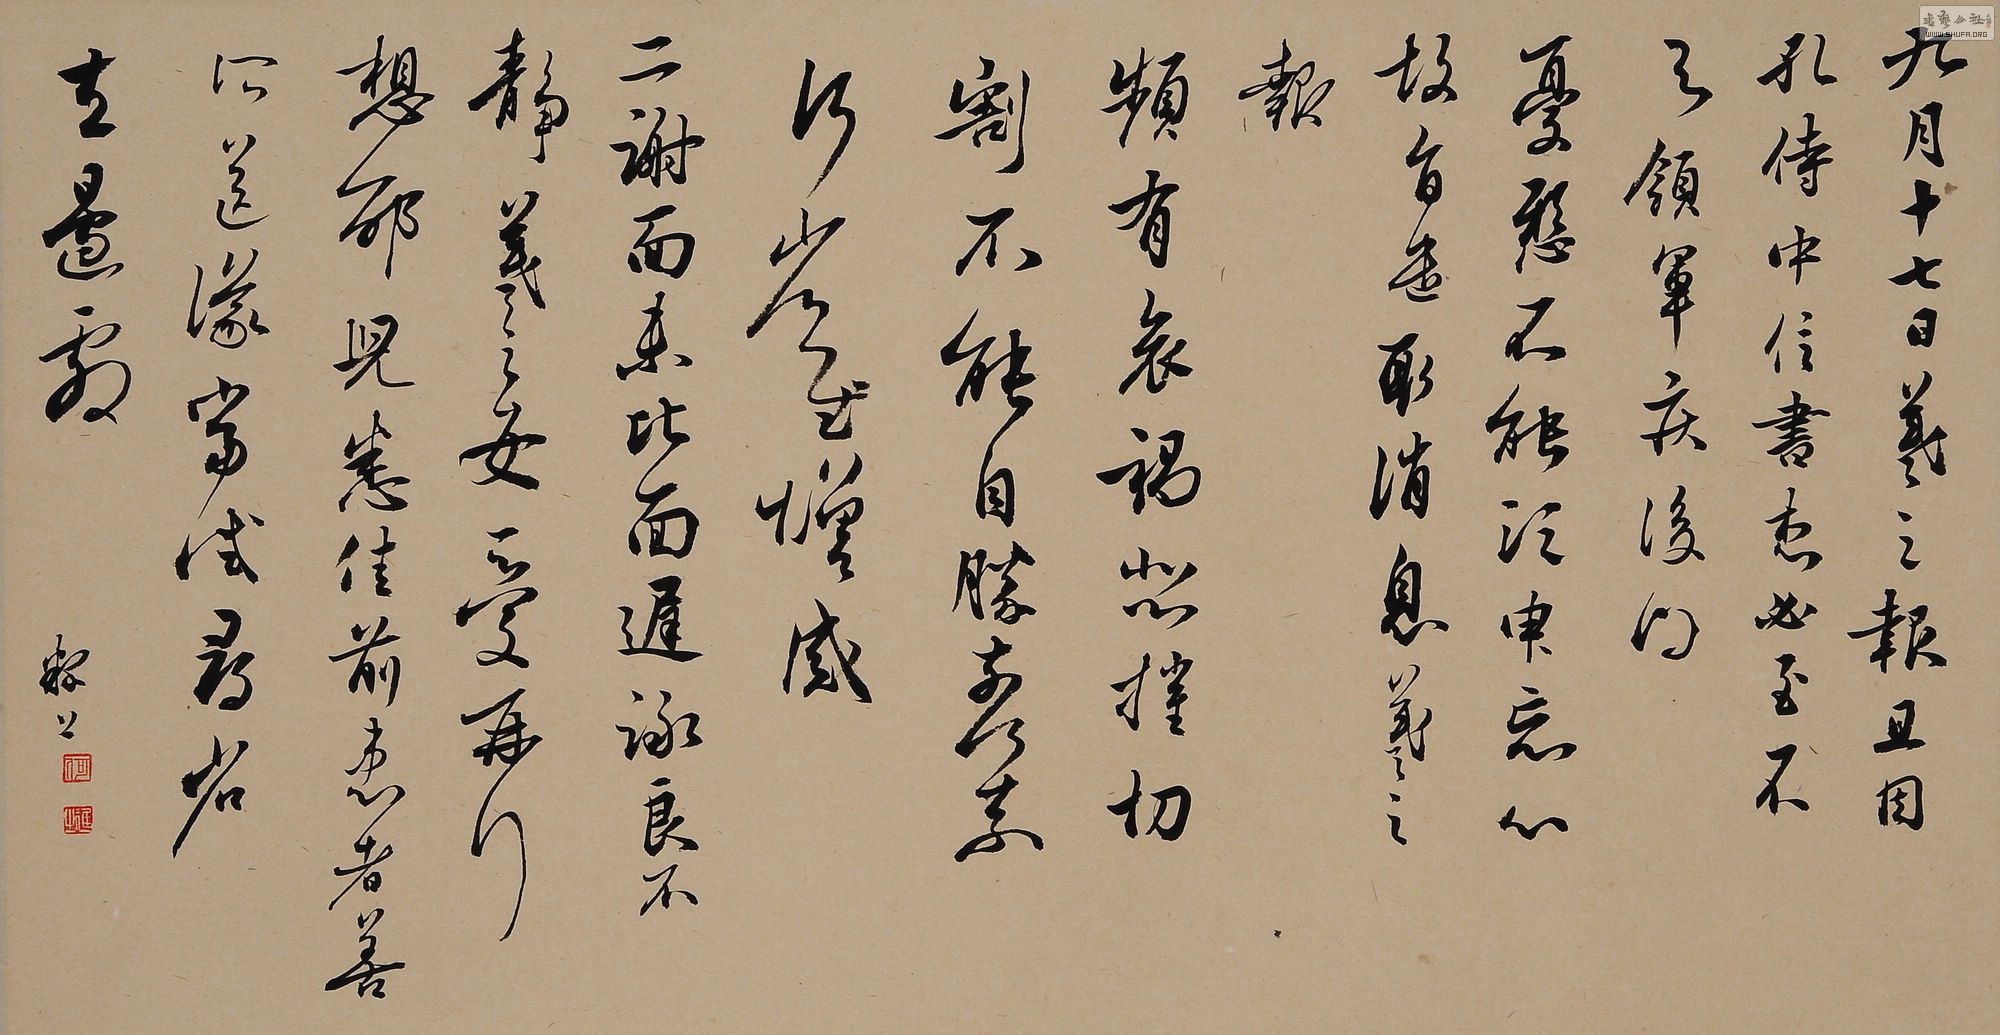 九月十七日羲之報且因
孔侍中信書想必至不
知領軍疾後問
憂懸不能須臾忘心
故旨遣取消息羲之
報
頻有哀禍悲摧切
割不能自勝奈何奈
何省慰增感
二謝面未比面遲詠良不
静羲之女愛再拜
想邰兒悉佳前患者善
所送議當試尋省
左邊劇
書藝公社
WWW.SHUFA.ORG